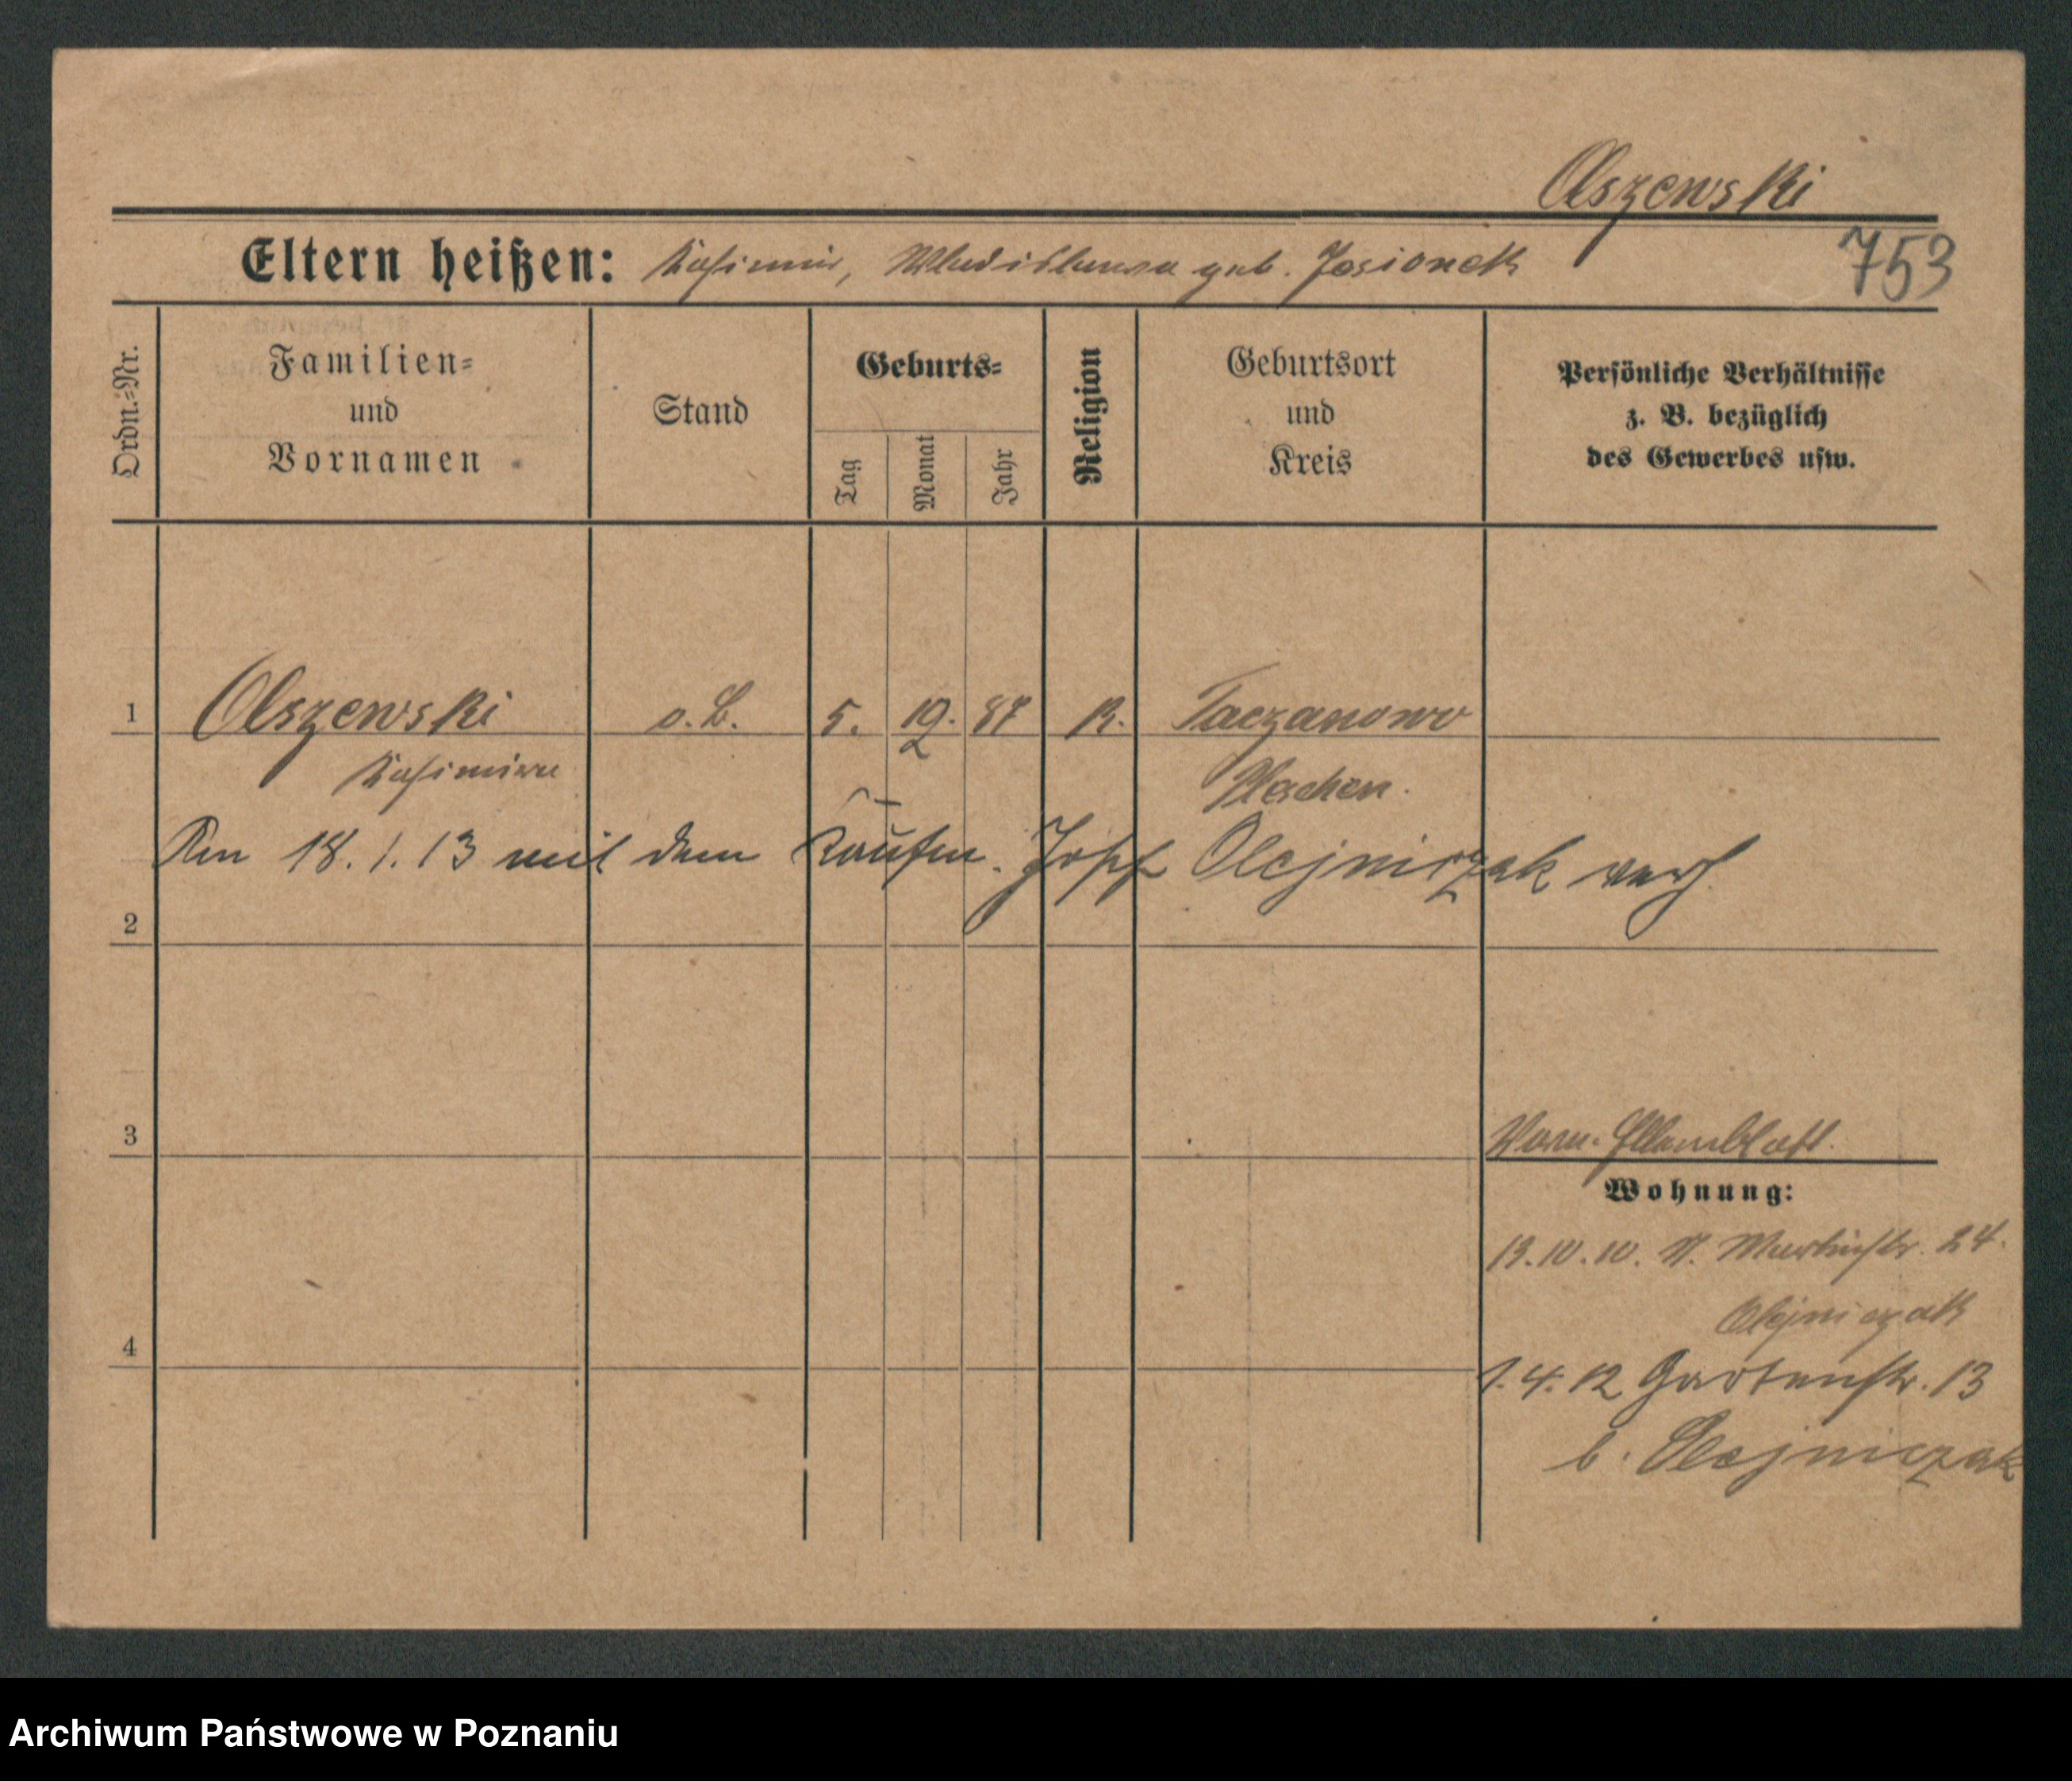 Olszewski
Eltern heißen: Kasimir, Wladislawa geb. Jesionek
753
Ordn.-Nr.
Familien-
und
Vornamen
Stand
Geburts-
Tag
Monat
Jahr
Religion
Geburtsort
und
Kreis
Persönliche Verhältnisse
z. B. bezüglich
des Gewerbes usw.
1 Olszewski o.B. 5. 87 K. Taczanowo
Kasimira Pleschen.
Am 18.1.13 mit dem Kaufm. Josef Olejniczak verh.
2
3
Wohnung:
4
13.10.10. St. Martinstr. 24.
Olejniczak
1.4.12 Gartenstr. 13
b. Olejniczak
Archiwum Państwowe w Poznaniu